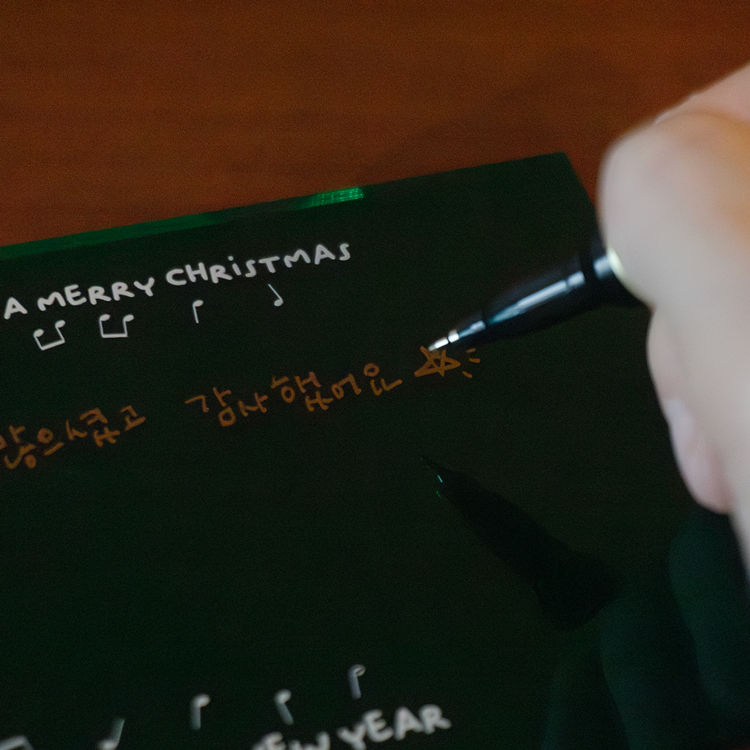 A MERRY CHRiSTMAS
많으셨고 감사했어요
NEW YEAR